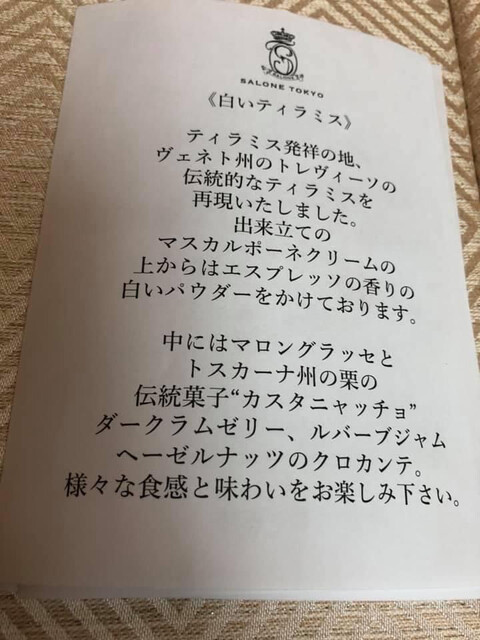 SALONE TOKYO
《白いティラミス》
ティラミス発祥の地、
ヴェネト州のトレヴィーソの
伝統的なティラミスを
再現いたしました。
出来立ての
マスカルポーネクリームの
上からはエスプレッソの香りの
白いパウダーをかけております。
中にはマロングラッセと
トスカーナ州の栗の
伝統菓子“カスタニャッチョ”
ダークラムゼリー、ルバーブジャム
ヘーゼルナッツのクロカンテ。
様々な食感と味わいをお楽しみ下さい。